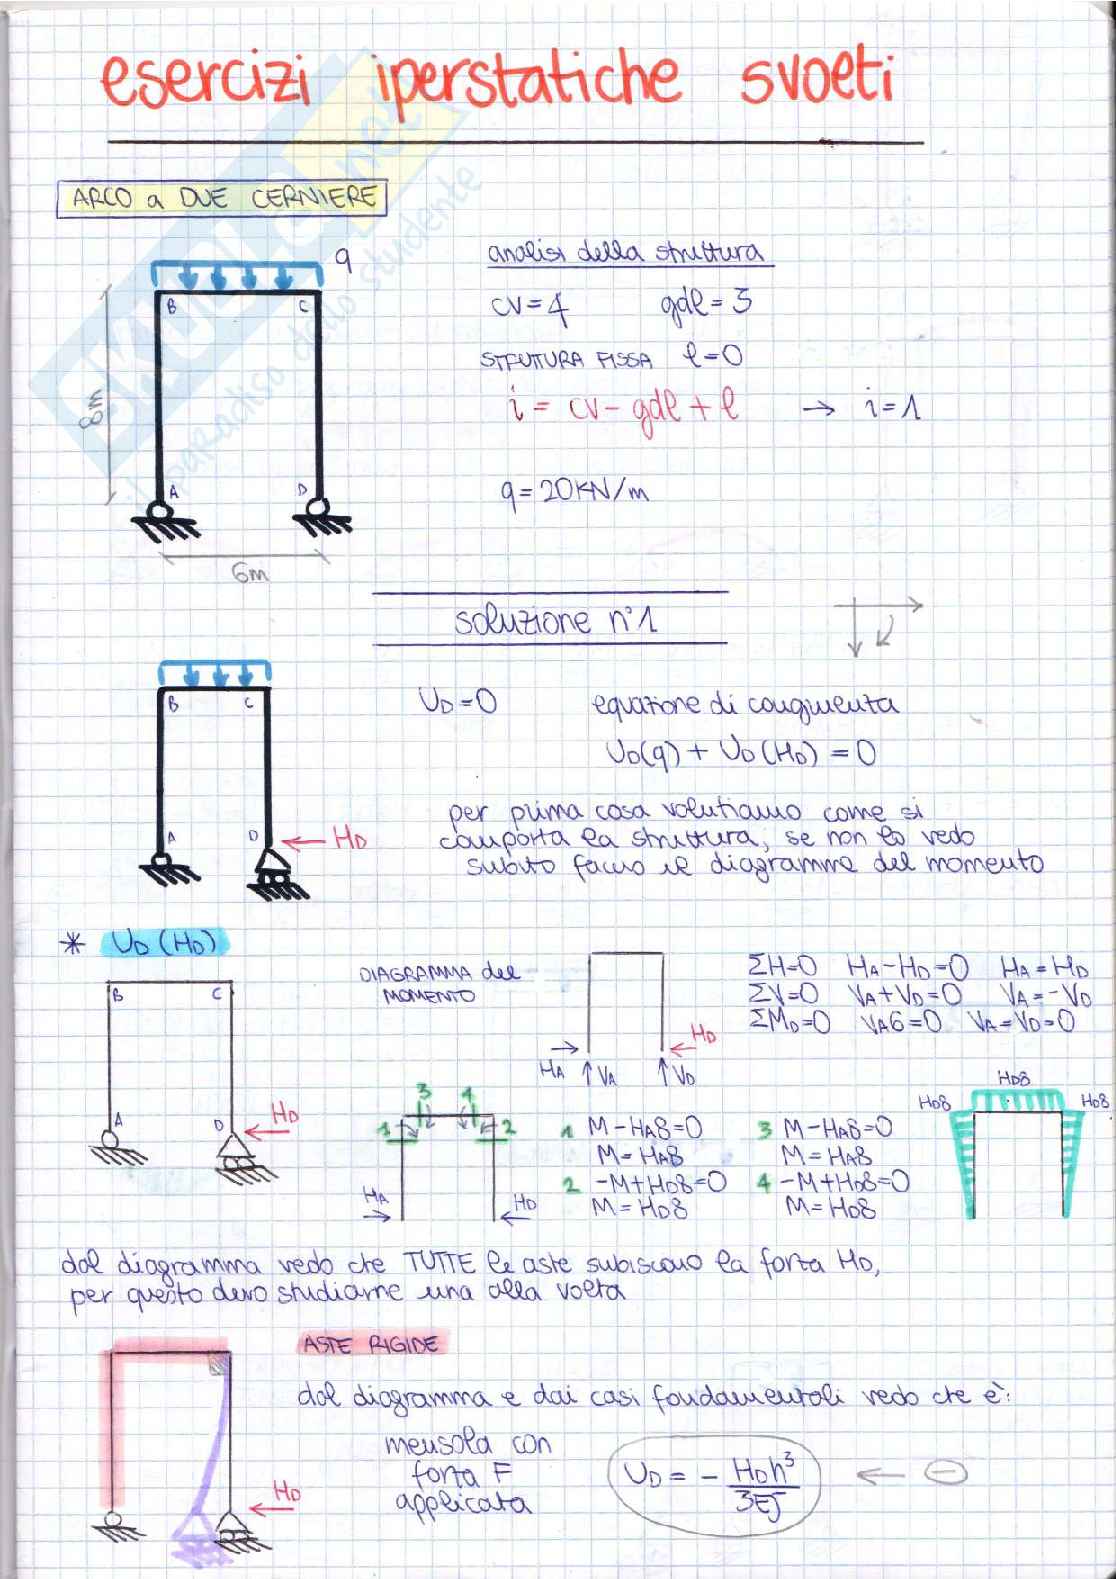 esercizi iperstatiche svolti
ARCO a DUE CERNIERE
q
B C
8m
A D
6m
analisi della struttura
cv=4 gdl=3
STRUTTURA FISSA l=0
i = cv - gdl + l → i=1
q=20KN/m
soluzione n°1
B C
A D
HD
UD=0 equazione di congruenza
UD(q) + UD(HD) = 0
per prima cosa valutiamo come si
comporta la struttura, se non lo vedo
subito faccio il diagramma del momento
* UD (HD)
B C
A D
HD
DIAGRAMMA del
MOMENTO
HA VA VD HD
ΣH=0 HA-HD=0 HA=HD
ΣV=0 VA+VD=0 VA=-VD
ΣMD=0 VA6=0 VA=VD=0
3 4
1 2
HA HD
1 M-HA8=0
M=HA8
2 -M+HD8=0
M=HD8
3 M-HA8=0
M=HA8
4 -M+HD8=0
M=HD8
HD8
HD8 HD8
dal diagramma vedo che TUTTE le aste subiscono la forza HD,
per questo devo studiarne una alla volta
ASTE RIGIDE
dal diagramma e dai casi fondamentali vedo che è:
mensola con
forza F
applicata
UD = - HDh³/3EJ ← −
HD
SKUOLA.net
il paradiso dello studente